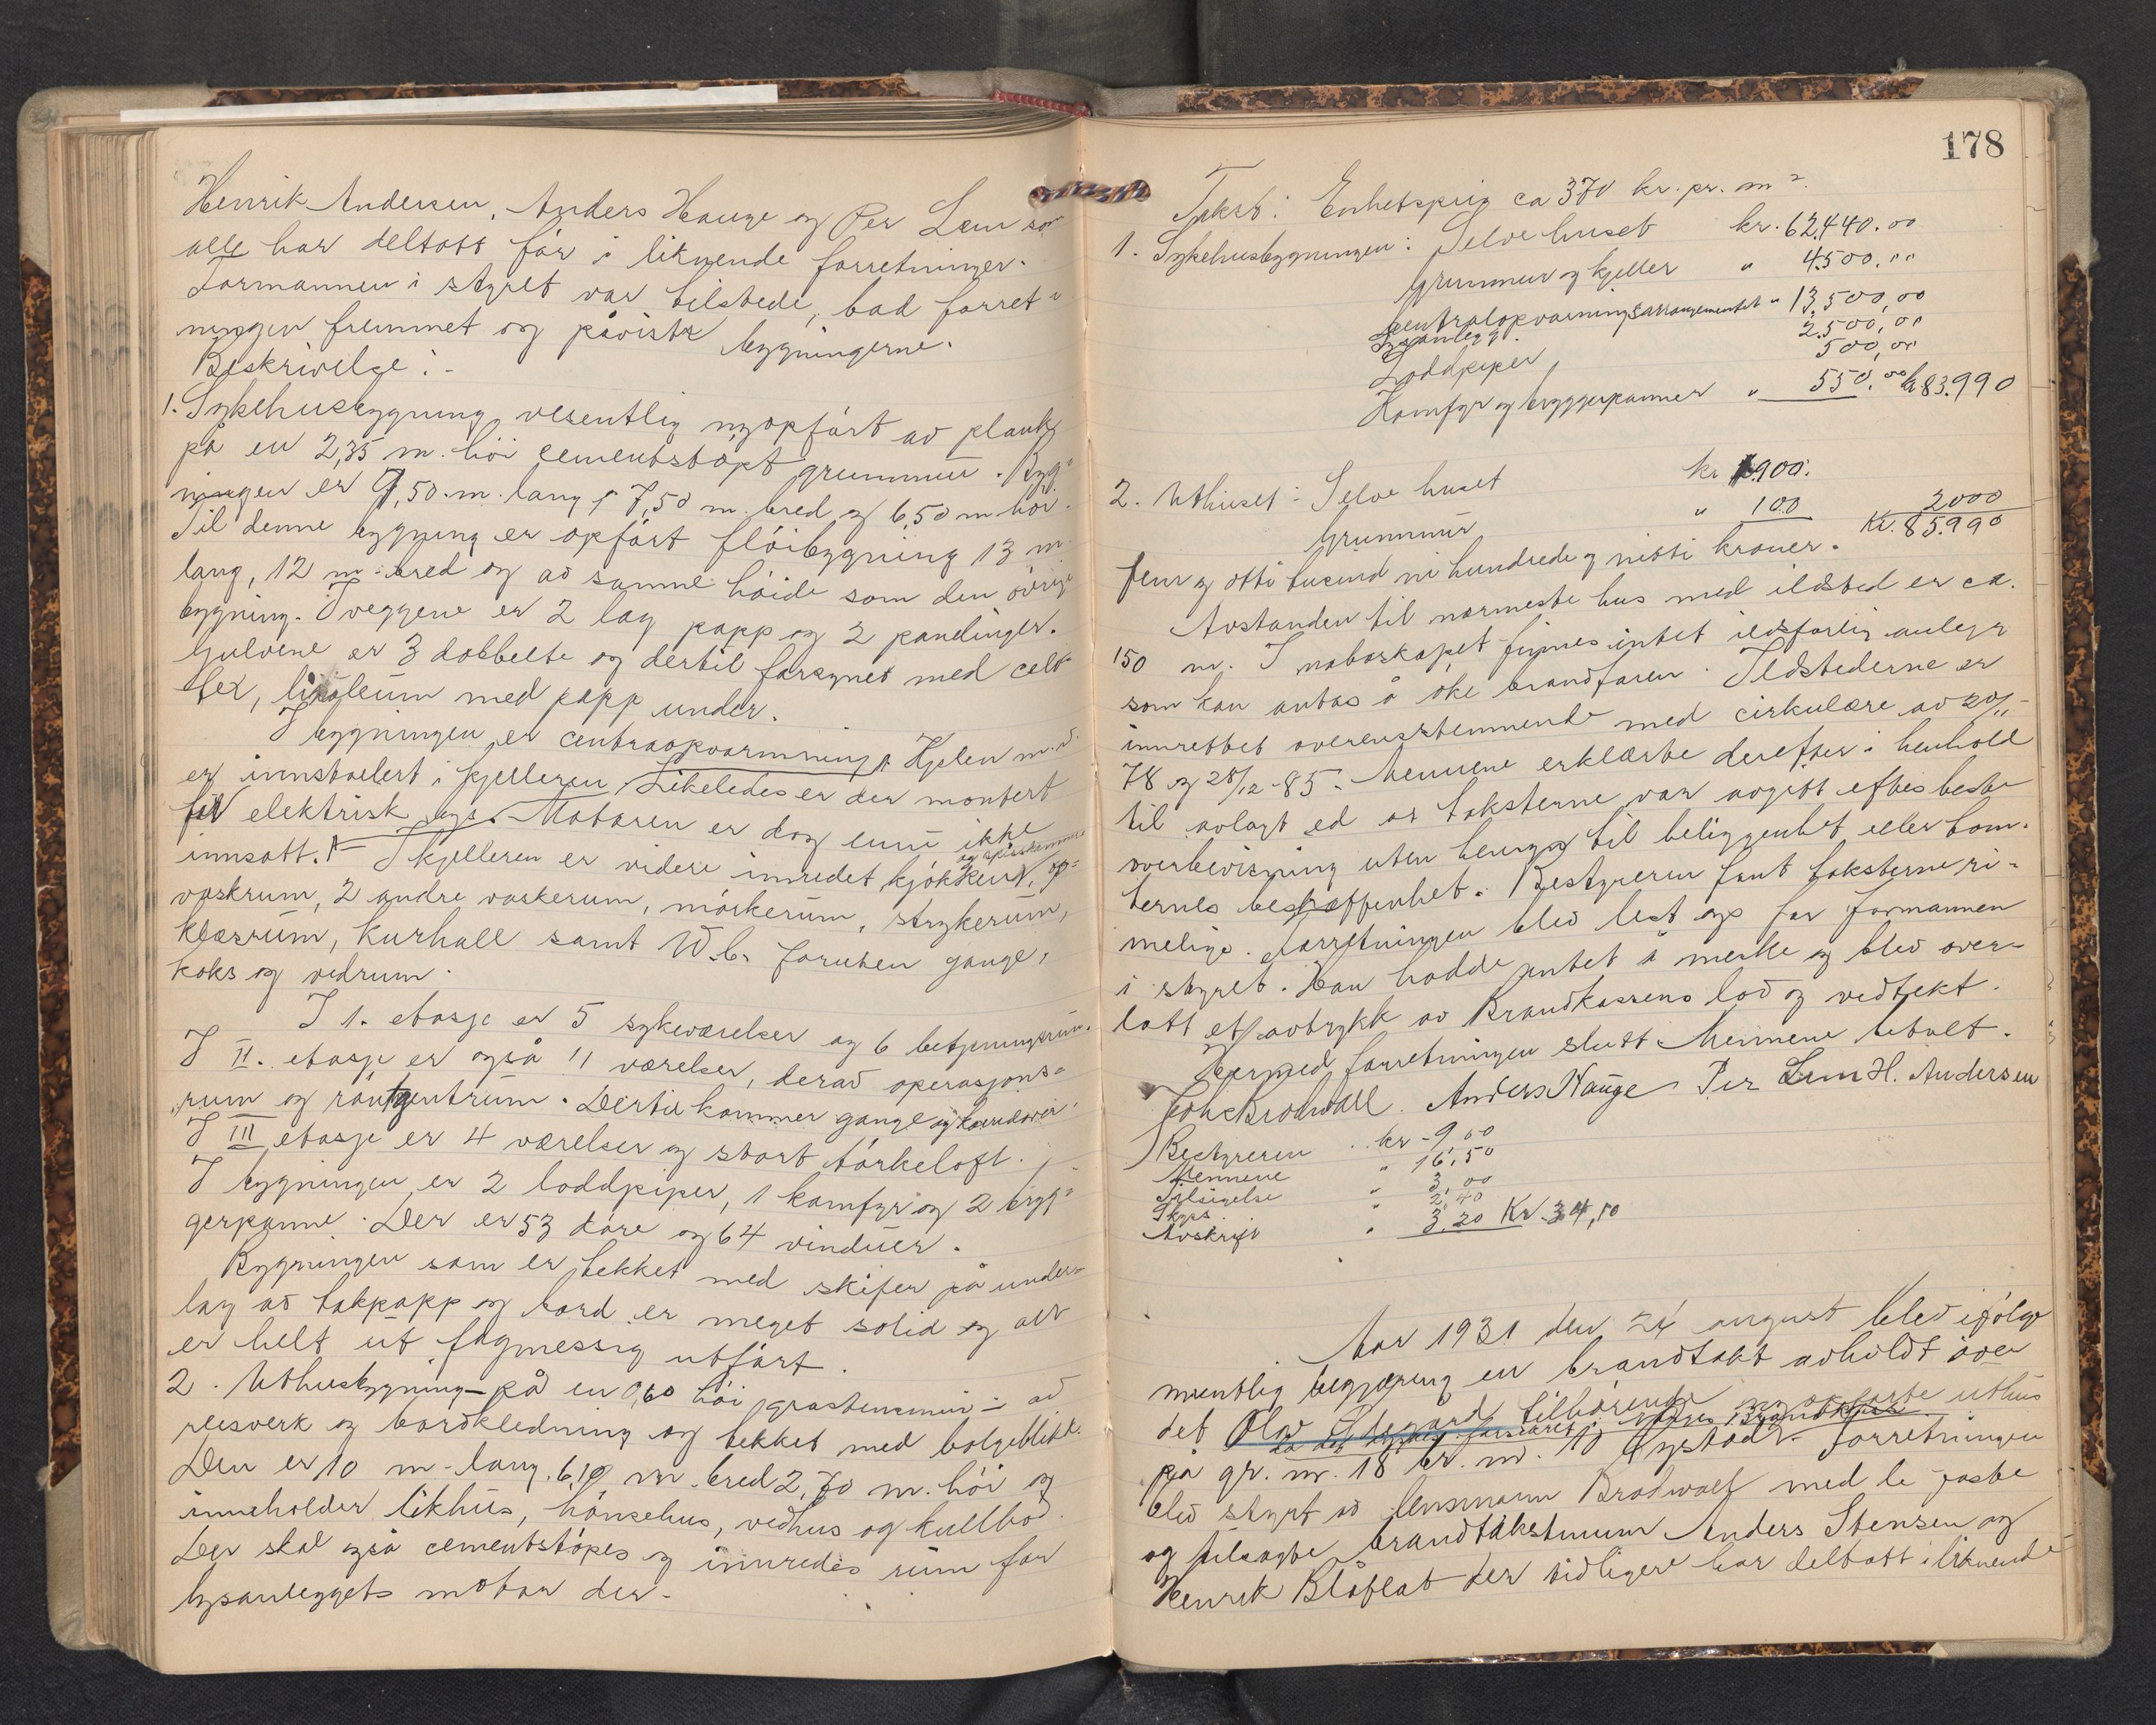 Henrik Andersen, Anders Hauge og Per Lem som
alle har deltatt før i liknende forretninger.
Formannen i styret var tilstede, bad forret-
ningen fremmet og påviste bygningerne.
Beskrivelse:-
1. Sykehusbygning vesentlig nyopført av plank
på en 2,35 m. høi cementstøpt grunnmur. Byg-
ningen er 9,50 m. lang, 7,50 m. bred og 6,50 m høi.
Til denne bygning er opført fløibygning 13 m.
lang, 12 m. bred og av samme høide som den øvrige
bygning. I veggene er 2 lag papp og 2 panelinger.
Gulvene er 3 dobbelte og dertil forsynet med celo-
tex, linoleum med papp under.
I bygningen er centralopvarming. Kjelen m.v.
er innstallert i kjelleren. Likeledes er der montert
for elektrisk lys. Motoren er dog ennu ikke
innsatt. I kjelleren er videre innredet kjøkken og spisekammer, op-
vaskrum, 2 andre vaskerum, mørkerum, strykerum,
klæsrum, kurhall samt W.C. foruten gange,
koks og vedrum.
I 1. etasje er 5 sykeværelser og 6 betjeningsrum.
I II. etasje er også 11 værelser, derav operasjons-
rum og røntgentrum. Dertil kommer gange og korridorer.
I III etasje er 4 værelser og stort tørkeloft.
I bygningen er 2 loddpiper, 1 komfyr og 2 brygg-
gerpanne. Der er 53 døre og 64 vinduer.
Bygningen som er tekket med skifer på under-
lag av takpapp og bord er meget solid og alt
er helt ut fagmessig utført.
2. Uthusbygning på en 0,60 høi gråstensmur - av
reisverk og bordkledning og tekket med bølgeblikk.
Den er 10 m. lang, 6,10 m. bred 2,70 m. høi og
inneholder likhus, hønsehus, vedhus og kullbod.
Der skal også cementstøpes og innredes rum for
lysanleggets motor der.
178
Takst: Enhetspris ca 370 kr. pr. m².
1. Sykehusbygningen: Selve huset kr. 62.440.00
Grunnmur og kjeller " 4.500.00
centralopvarmingsarrangementet " 13,500,00
Lysanlegg 2.500,00
Loddpiper 500,00
Komfyr og bryggerpanner " 550.00 kr. 83.990
2. Uthuset: Selve huset kr 1900.
Grunnmur " 100 2000
Kr. 85.990
fem og otti tusind ni hundrede og nitti kroner.
Avstanden til nærmeste hus med ildsted er ca.
150 m. I naboskapet finnes intet ildsfarlig anlegg
som kan antas å øke brandfaren. Ildstederne er
innrettet overensstemmende med cirkulære av 20/11-
78 og 28/12-85. Mennene erklærte derefter i henhold
til avlagt ed at taksterne var avgitt efter beste
overbevisning uten hensyn til beliggenhet eller tom-
ternes beskaffenhet. Bestyreren fant taksterne ri-
melige. Forretningen blev lest op for formannen
i styret. Han hadde intet å merke og blev over-
latt et avtrykk av Brandkassens lov og vedtekt.
Hermed forretningen slutt. Mennene betalt.
John Brodwall. Anders Hauge Per Lem H. Andersen
Bestyreren kr - 9,00
Mennene " 16,50
Tilsigelse " 3,00
Skyss " 2,40
Avskrift " 3,20 Kr. 34,10
Aar 1931 den 24 august blev ifølge
muntlig begjæring en brandtakst avholdt over
det Olav tilhørende nyopførte uthus
på gr. nr. 18 br. nr. 10 Nystad. Forretningen
blev styrt av lensmann Brodwall med de faste
og tilsagte brandtakstmenn Anders Stensen og
Henrik Blåflat der tidligere har deltatt i liknende